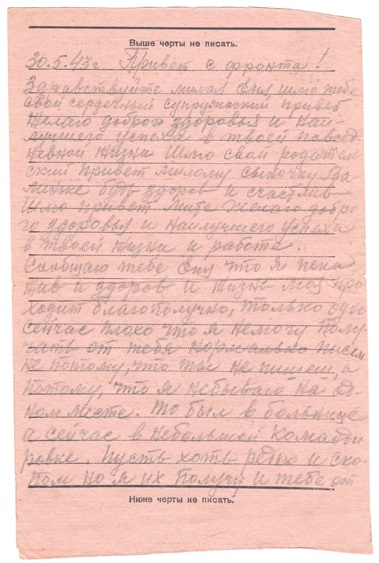 Выше черты не писать.
30.5.43г Привет с фронта!
Здравствуйте милая Еня шлю тебе
свой сердечный супружеский привет
желаю доброго здоровья и наи-
лучшего успеха в твоей повсед
невной жизни Шлю свой родитель
ский привет милому сыночку
быть здоров и счастлив
Шлю привет желаю добро
го здоровья и наилучшего успеха
в твоей жизни и работе.
Сообщаю тебе Еня что я пока
жив и здоров и жизнь моя про
ходит благополучно, только одно
сейчас плохо что я немогу полу
чать от тебя нормально письм
не потому, что ты не пишеш, а
потому, что я небываю на од
ном месте. То был в больнице
а сейчас в небольшой команди
ровке. Пусть хоть редко и ско
пом но я их получу и тебе от
Ниже черты не писать.